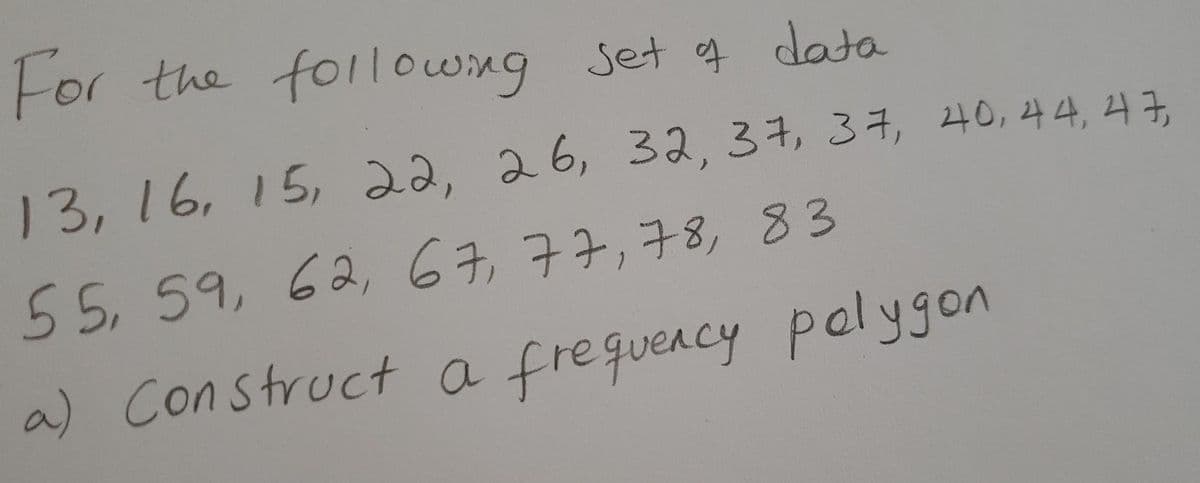 For the following set of data
13, 16, 15, 22, 26, 32, 37, 37, 40, 44, 47,
55, 59, 62, 67, 77, 78, 83
a) Construct a frequency polygon